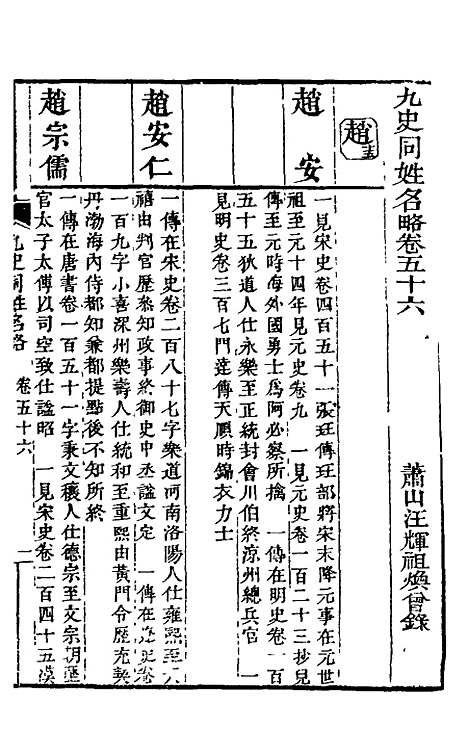 九史同姓名略卷五十六
蕭山汪輝祖煥曾錄
趙
趙安
一見宋史卷四百五十一張珏傳珏部將宋末降元事在元世
祖至元十四年見元史卷九　一見元史卷一百二十三抄兒
傳至元時海外國勇士爲阿必察所擒　一傳在明史卷一百
五十五狄道人仕永樂至正統封會川伯終涼州總兵官　一
見明史卷三百七門達傳天順時錦衣力士
趙安仁
一傳在宋史卷二百八十七字樂道河南洛陽人仕雍熙至
禧由判官歷參知政事終御史中丞謚文定　一傳在史卷
一百九字小喜深州樂壽人仕統和至重熙由黃門令歷充契
丹渤海內侍都知兼都提點後不知所終
趙宗儒
一傳在唐書卷一百五十一字秉文穰人仕德宗至文宗朝歷
官太子太傅以司空致仕謚昭　一見宋史卷二百四十五漢
九史同姓名略
卷五十六
一